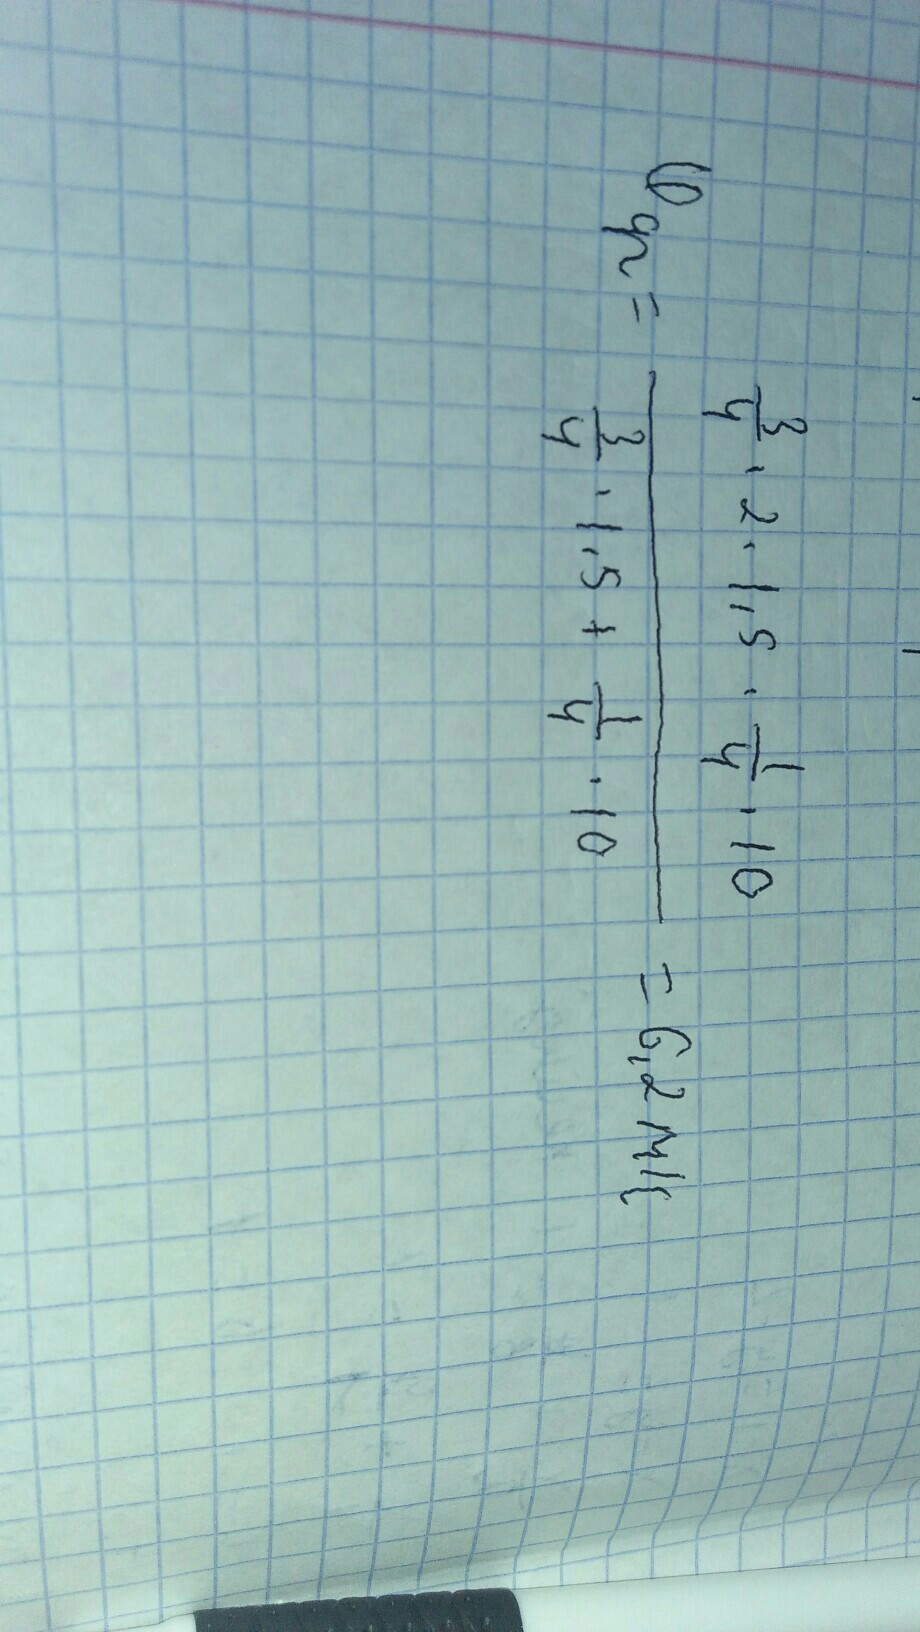 φ_ди = (3/4 · 2 · 1,5 · 1/4 · 10) / (3/4 · 1,5 + 1/4 · 10) = 6,2 м/с